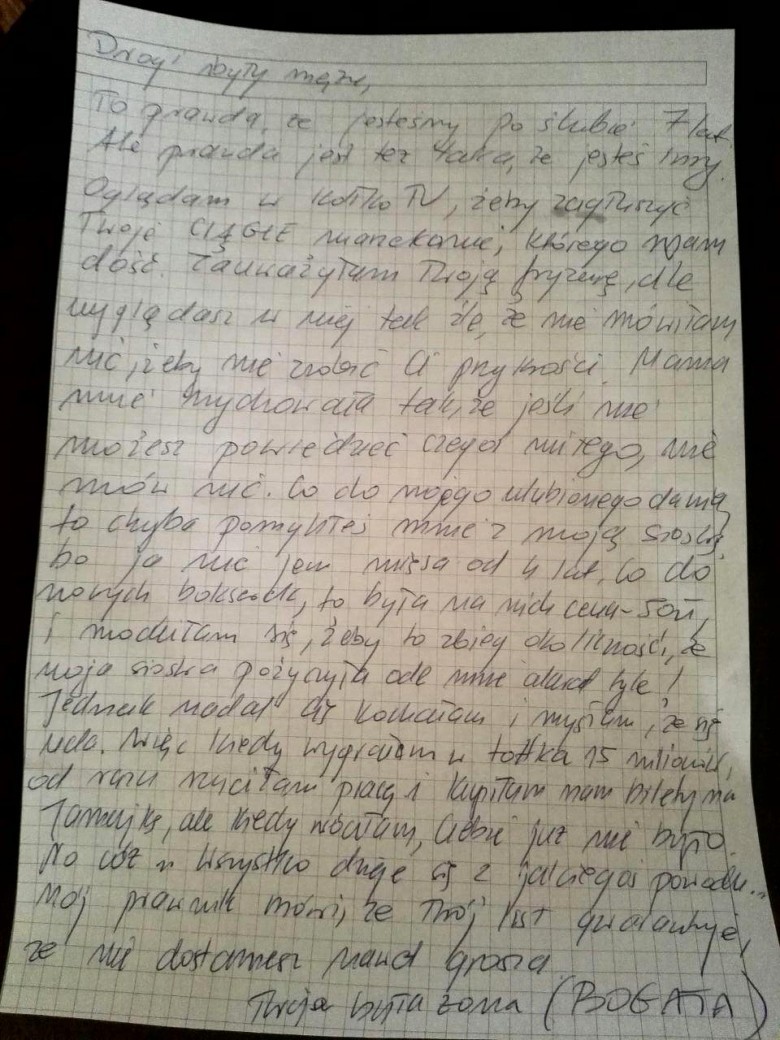 Drogi były mężu,
To prawda, że jesteśmy po ślubie 7 lat.
Ale prawda jest też taka, że jesteś inny.
Oglądam w kółko TV, żeby zagłuszyć
Twoje CIĄGŁE narzekanie, którego mam
dość. Zauważyłam Twoją fryzurę, ale
wyglądasz w niej tak źle, że nie mówiłam
nic, żeby nie zrobić Ci przykrości. Mama
mnie wychowała tak, że jeśli nie
możesz powiedzieć czegoś miłego, nie
mów nic. Co do mojego ulubionego dania,
to chyba pomyliłeś mnie z moją siostrą,
bo ja nie jem mięsa od 4 lat. Co do
nowych bokserek, to była na nich cena - 50zł,
i modliłam się, żeby to zbieg okoliczności, że
moja siostra pożyczyła ode mnie akurat tyle!
Jednak nadal Cię kochałam i myślałam, że się
uda. Więc kiedy wygrałam w totka 15 milionów,
od razu rzuciłam pracę i kupiłam nam bilety na
Jamajkę, ale kiedy wróciłam, Ciebie już nie było.
No cóż, wszystko dzieje się z jakiegoś powodu...
Mój prawnik mówi, że Twój list gwarantuje,
że nie dostaniesz nawet grosza.
Twoja była żona (BOGATA)